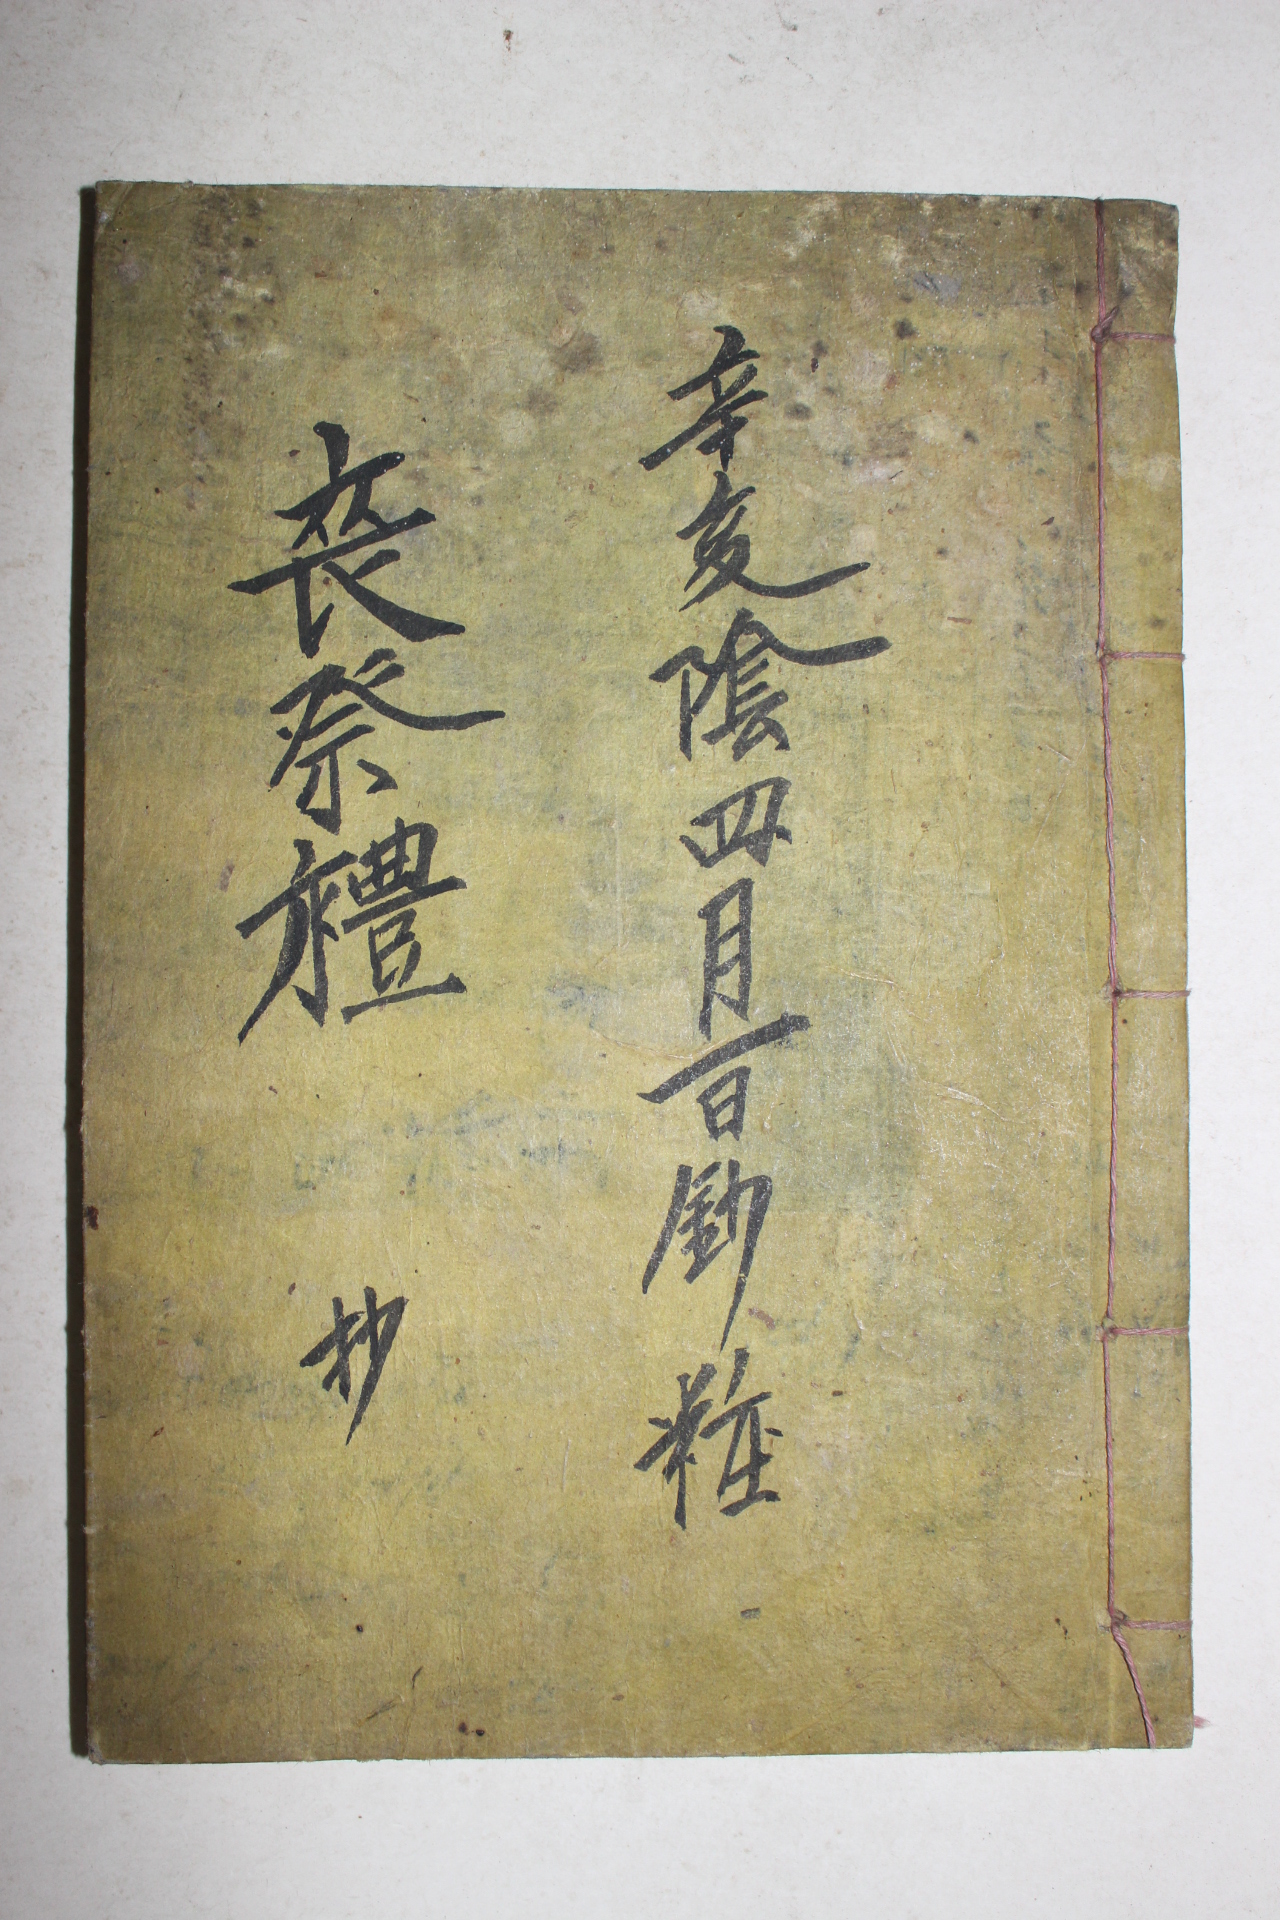 辛亥陰四月一日鈔粧
喪祭禮 抄